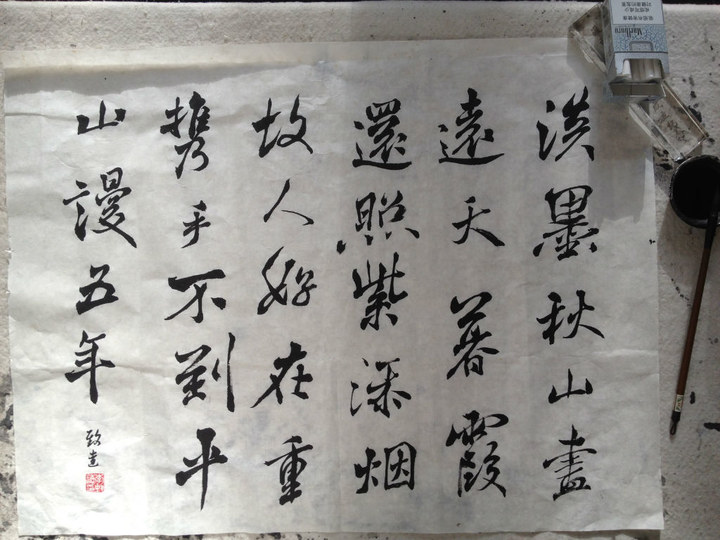 淡墨秋山畫
遠天暮霞
還照紫添烟
故人好在重
携手不到平
山謾五年
Marlboro